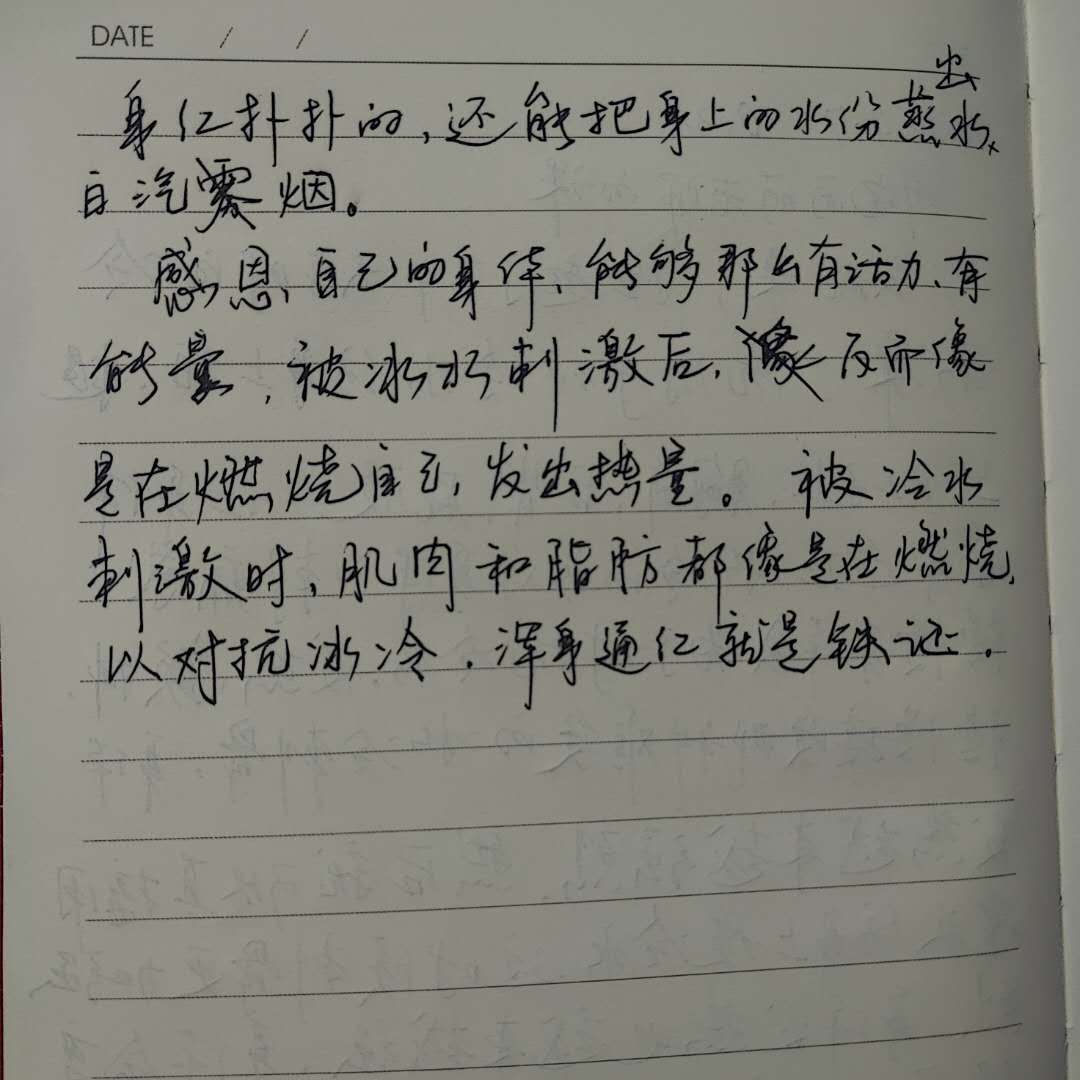 DATE / /
身红扑扑的,还能把身上的水份蒸出水
白汽雾烟。
感恩自己的身体,能够那么有活力、有
能量,被冰水刺激后,像反而像
是在燃烧自己,发出热量。被冷水
刺激时,肌肉和脂肪都像是在燃烧,
以对抗冰冷.浑身通红就是铁证.